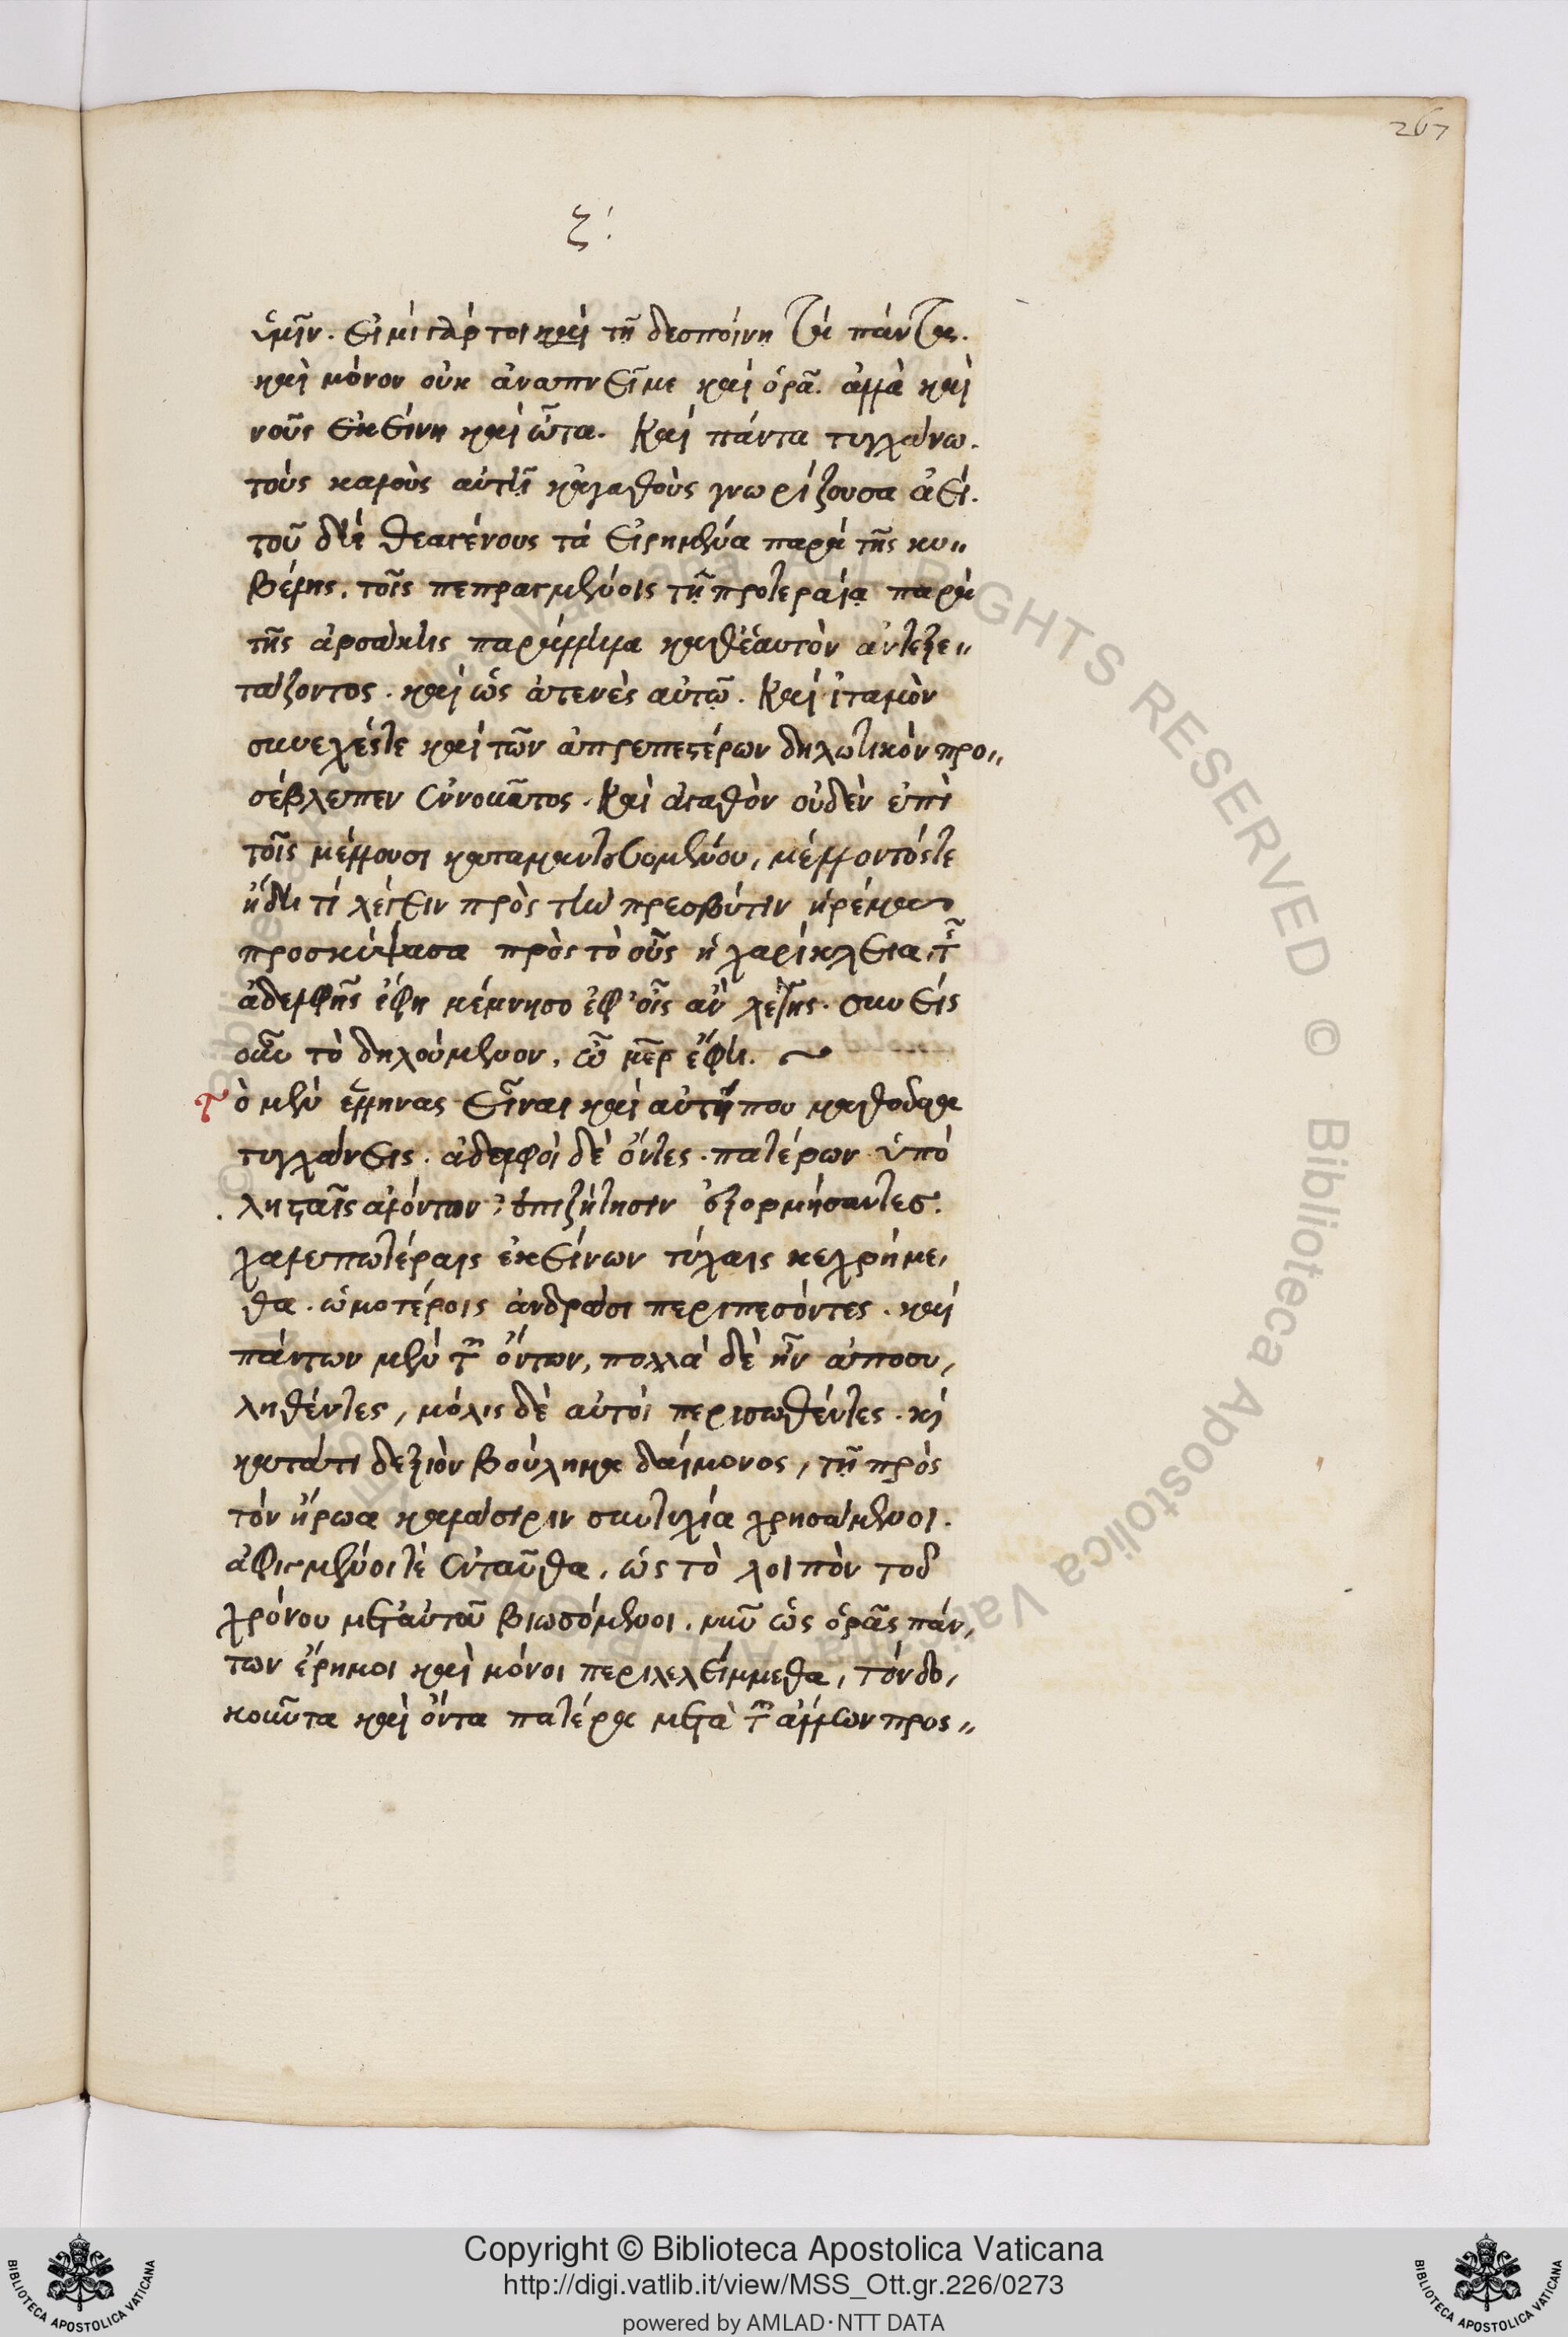 267
ζ΄
ὑμῖν. εἰμὶ γάρ τοι καὶ τῇ δεσποίνῃ τὰ πάντα.
καὶ μόνον οὐκ ἀναπνεῖ με καὶ ὁρᾷ. ἀλλὰ καὶ
νοῦς ἐκείνη καὶ ὦτα. καὶ πάντα τυγχάνω.
τοὺς καλοὺς αὐτῇ κἀγαθοὺς γνωρίζουσα ἀεί.
τοῦ δὴ θεαγένους τὰ εἰρημένα παρὰ τῆς κυ〃
βέλης. τοῖς πεπραγμένοις τῇ προτεραίᾳ παρὰ
τῆς ἀρσάκης παράλληλα καθ' ἑαυτὸν ἀντεξε〃
τάζοντος. καὶ ὡς ἀτενὲς αὐτῷ. καὶ ἰταμὸν
συνεχές τε καὶ τῶν ἀπρεπεστέρων δηλωτικὸν προ〃
σέβλεπεν ἐννοοῦντος. καὶ ἀγαθὸν οὐδὲν ἐπὶ
τοῖς μέλλουσι καταμαντευομένου, μέλλοντός τε
ἤδη τί λέγειν πρὸς τὴν πρεσβύτιν ἠρέμα
προσκύψασα πρὸς τὸ οὖς ἡ χαρίκλεια, τῆς
ἀδελφῆς ἔφη μέμνησο ἐφ' οἷς ἂν λέγῃς. συνεὶς
οὖν τὸ δηλούμενον. ὦ μῆτερ ἔφη.
τὸ μὲν ἕλληνας εἶναι καὶ αὐτή που μαθοῦσα
τυγχάνεις. ἀδελφοὶ δὲ ὄντες. πατέρων ὑπὸ
λῃσταῖς ἁλόντων ἐπιζήτησιν ἐξορμήσαντες.
χαλεπωτέραις ἐκείνων τύχαις κεχρήμε,
θα. ὠμοτέροις ἀνδράσι περιπεσόντες. καὶ
πάντων μὲν τῶν ὄντων, πολλὰ δὲ ἦν ἀποσυ,
ληθέντες, μόλις δὲ αὐτοὶ περισωθέντες. καὶ
κατά τι δεξιὸν βούλημα δαίμονος, τῇ πρὸς
τὸν ἥρωα καλάσιριν συντυχίᾳ χρησάμενοι.
ἀφιγμένοι τε ἐνταῦθα. ὡς τὸ λοιπὸν τοῦ
χρόνου μετ' αὐτοῦ βιωσόμενοι. νῦν ὡς ὁρᾷς πάν,
των ἔρημοι καὶ μόνοι περιλελείμμεθα, τὸν δο,
κοῦντα καὶ ὄντα πατέρα μετὰ τῶν ἄλλων προς〃
Copyright © Biblioteca Apostolica Vaticana
http://digi.vatlib.it/view/MSS_Ott.gr.226/0273
powered by AMLAD·NTT DATA